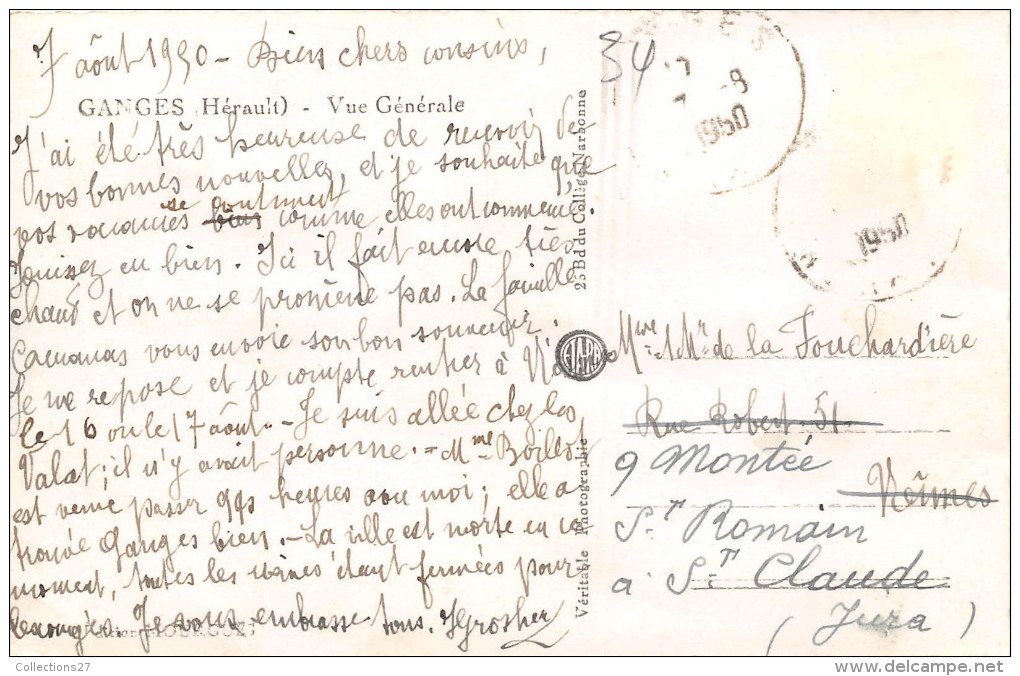 7 août 1950 - Biens chers cousins,
GANGES (Hérault) - Vue Générale
J'ai été très heureuse de recevoir de
vos bonnes nouvelles, et je souhaite que
vos vacances se continuent comme elles ont commencé.
Jouissez en bien. Ici il fait encore très
chaud et on ne se promène pas. La famille
vous envoie son bon souvenir.
Je me repose et je compte rentrer à
le 16 ou le 17 août. - Je suis allée chez les
Valat; il n'y avait personne. = Mme Boillot
est venue passer qqs heures avec moi; elle a
trouvé Ganges bien. - La ville est morte en ce
moment, toutes les usines étant fermées pour
les congés. Je vous embrasse tous.
34
8
1950
1950
25 Bd du Collège Narbonne
Véritable Photographie
Mme & Mr de la Fouchardière
Rue Robert 51
Nîmes
9 Montée
St Romain
à St Claude
(Jura)
Collections27
delcampe.net